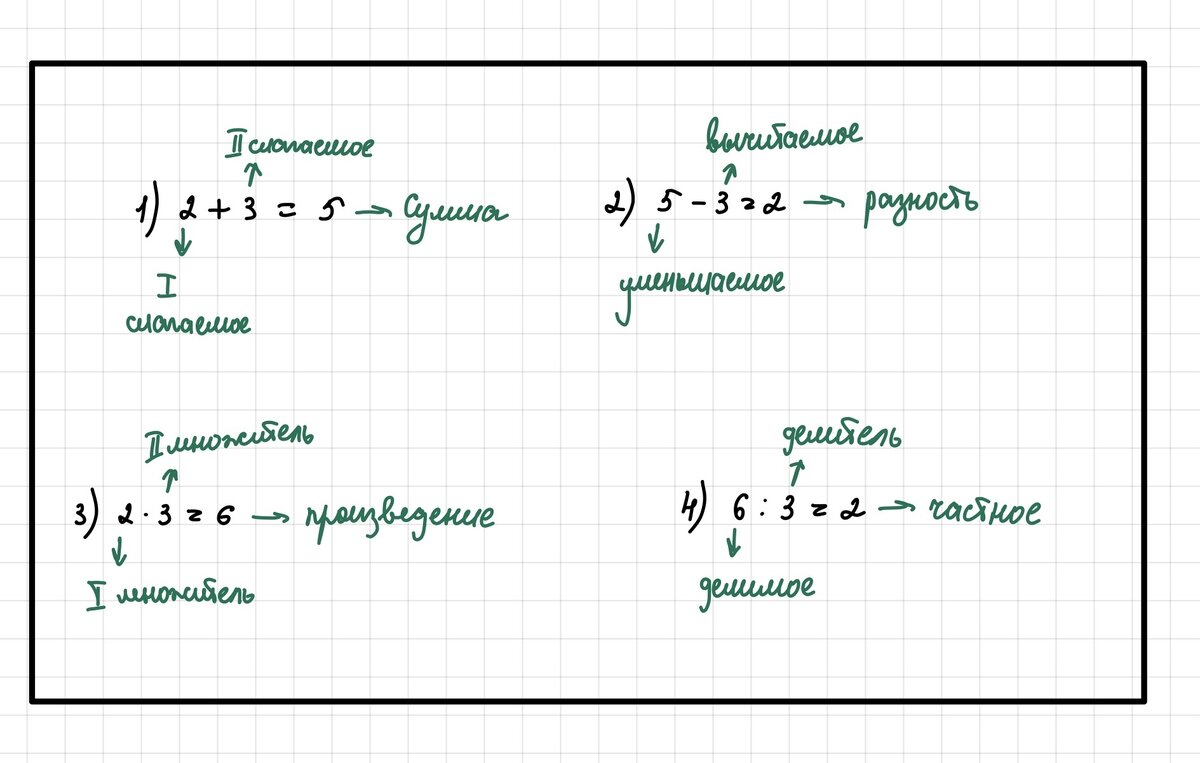 II слагаемое
1) 2 + 3 = 5 → Сумма
I
слагаемое
вычитаемое
2) 5 - 3 = 2 → разность
уменьшаемое
II множитель
3) 2 · 3 = 6 → произведение
I множитель
делитель
4) 6 : 3 = 2 → частное
делимое